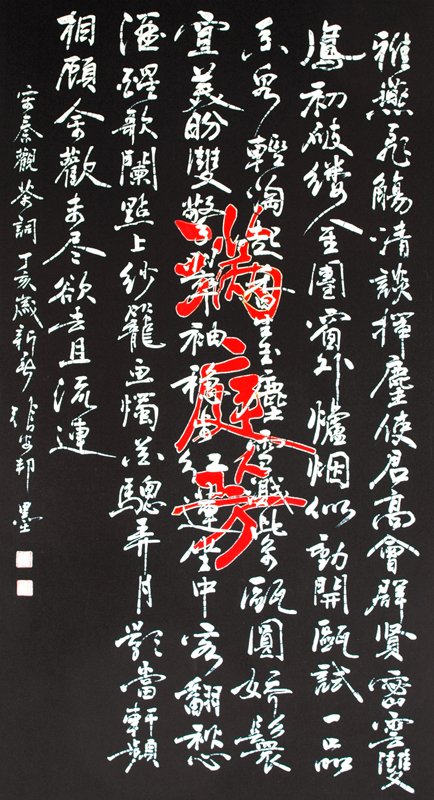 雅燕飛觴清談揮麈使君高會群賢密雲雙
鳳初破縷金團窗外爐烟似動開甌試一品
香泉輕濤起香生玉塵雪濺紫甌圓嬌鬟
宜美盼雙擎翠袖穩步紅蓮坐中客翻愁
酒醒歌闌點上紗籠画燭花驄弄月影當軒頻
相顧余歡未尽欲去且流連
宋秦觀茶詞丁亥歲新春邦墨
滿庭芳